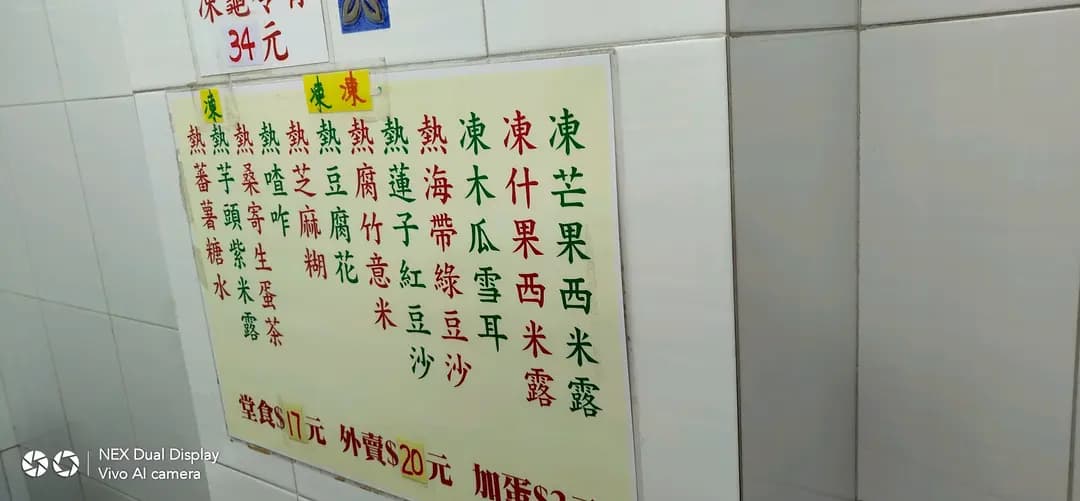 凍龜苓膏
34元
凍 凍
凍
凍芒果西米露
凍什果西米露
凍木瓜雪耳
熱海帶綠豆沙
熱蓮子紅豆沙
熱腐竹意米
熱豆腐花
熱芝麻糊
熱喳咋
熱桑寄生蛋茶
熱芋頭紫米露
熱蕃薯糖水
堂食$17元 外賣$20元 加蛋$
NEX Dual Display
Vivo AI camera